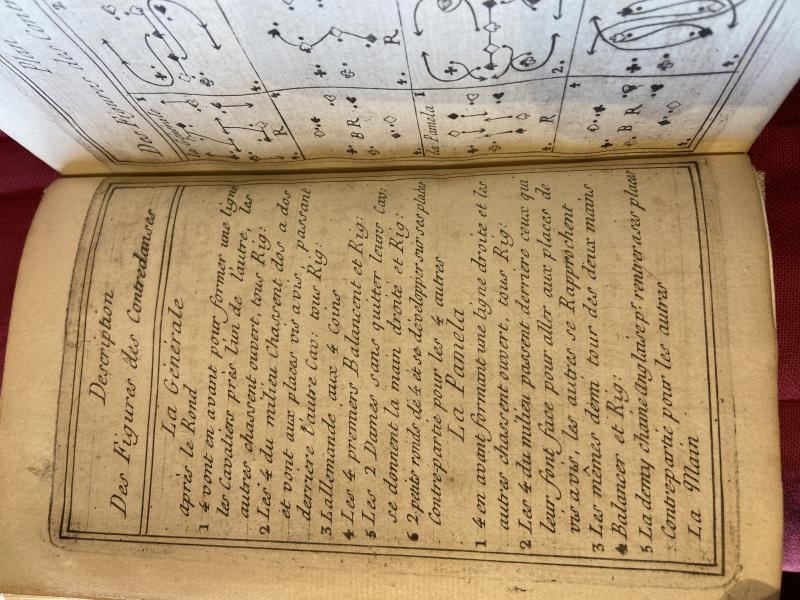 Description
Des Figures des Contredanses
La Générale
après le Rond
1 4 vont en avant pour former une ligne
les Cavaliers près l'un de l'autre, les
autres chassent ouvert, tous Rig:
2 Les 4 du milieu Chassent dos a dos
et vont aux places vis a vis, passant
derriere l'autre Cav: tous Rig:
3 L'allemande aux 4 Coins
4 Les 4 premiers Balancent et Rig:
5 Les 2 Dames sans quitter leurs Cav:
se donnent la main droite et Rig:
6 2 petits ronds de 4 et se développer sur ses places
Contre-partie pour les 4 autres
La Pamela
1 4 en avant formant une ligne droite et les
autres chassent ouvert, tous Rig:
2 Les 4 du milieu passent derriere ceux qui
leur font face pour aller aux places de
vis a vis, les autres se Rapprochent
3 Les mêmes demi tour des deux mains
4 Balancer et Rig:
5 La demy chaine anglaise pr rentrer a ses places
Contrepartie pour les autres
La Main
Des Figures des
R
4.
4.
B R
R
4.
La Pamela
1
R
4.
2.
B R
4.